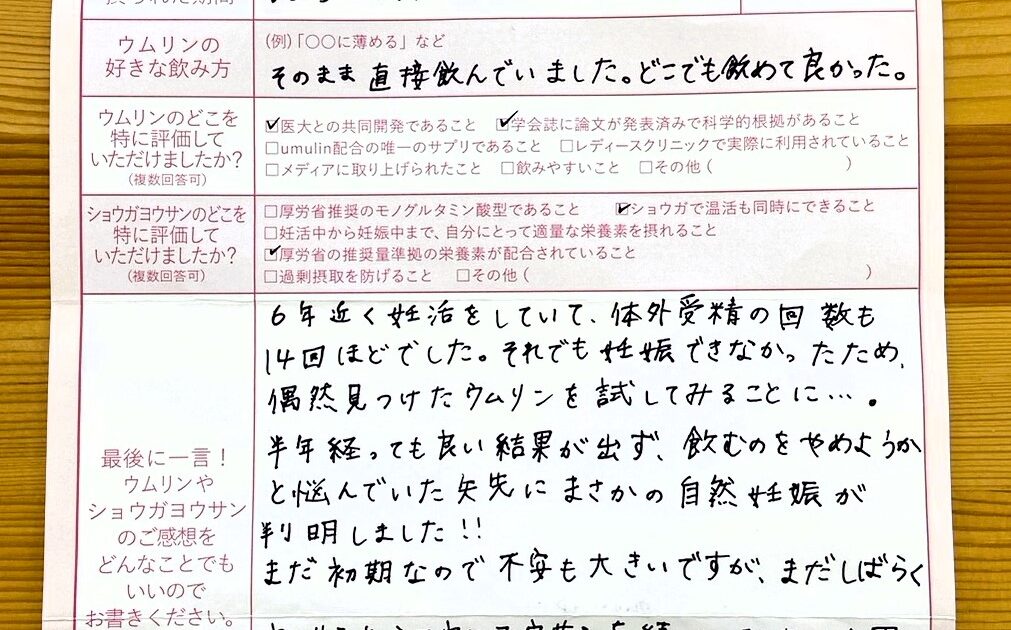 ウムリンの
好きな飲み方
(例)「○○に薄める」など
そのまま直接飲んでいました。どこでも飲めて良かった。
ウムリンのどこを
特に評価して
いただけましたか?
(複数回答可)
☑医大との共同開発であること ☑学会誌に論文が発表済みで科学的根拠があること
□umulin配合の唯一のサプリであること □レディースクリニックで実際に利用されていること
□メディアに取り上げられたこと □飲みやすいこと □その他( )
ショウガヨウサンのどこを
特に評価して
いただけましたか?
(複数回答可)
□厚労省推奨のモノグルタミン酸型であること ☑ショウガで温活も同時にできること
□妊活中から妊娠中まで、自分にとって適量な栄養素を摂れること
☑厚労省の推奨量準拠の栄養素が配合されていること
□過剰摂取を防げること □その他( )
最後に一言!
ウムリンや
ショウガヨウサン
のご感想を
どんなことでも
いいので
お書きください。
6年近く妊活をしていて、体外受精の回数も
14回ほどでした。それでも妊娠できなかったため、
偶然見つけたウムリンを試してみることに…。
半年経っても良い結果が出ず、飲むのをやめようか
と悩んでいた矢先にまさかの自然妊娠が
判明しました!!
まだ初期なので不安も大きいですが、まだしばらく